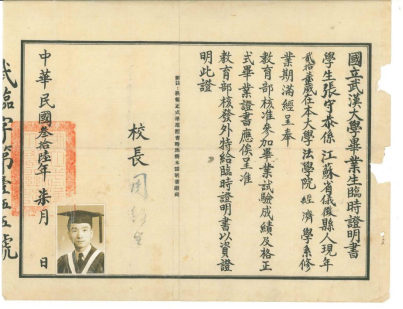 國立武漢大學畢業生臨時證明書
學生張守泰係江蘇省儀徵縣人現年
貳拾叁歲在本大學法學院經濟學系修
業期滿經呈奉
教育部核准參加畢業試驗成績及格正
式畢業證書應俟呈准
教育部核發外特給臨時證明書以資證
明此證
校長周鯁生
中華民國叁拾陸年柒月 日
武臨字第壹五五號